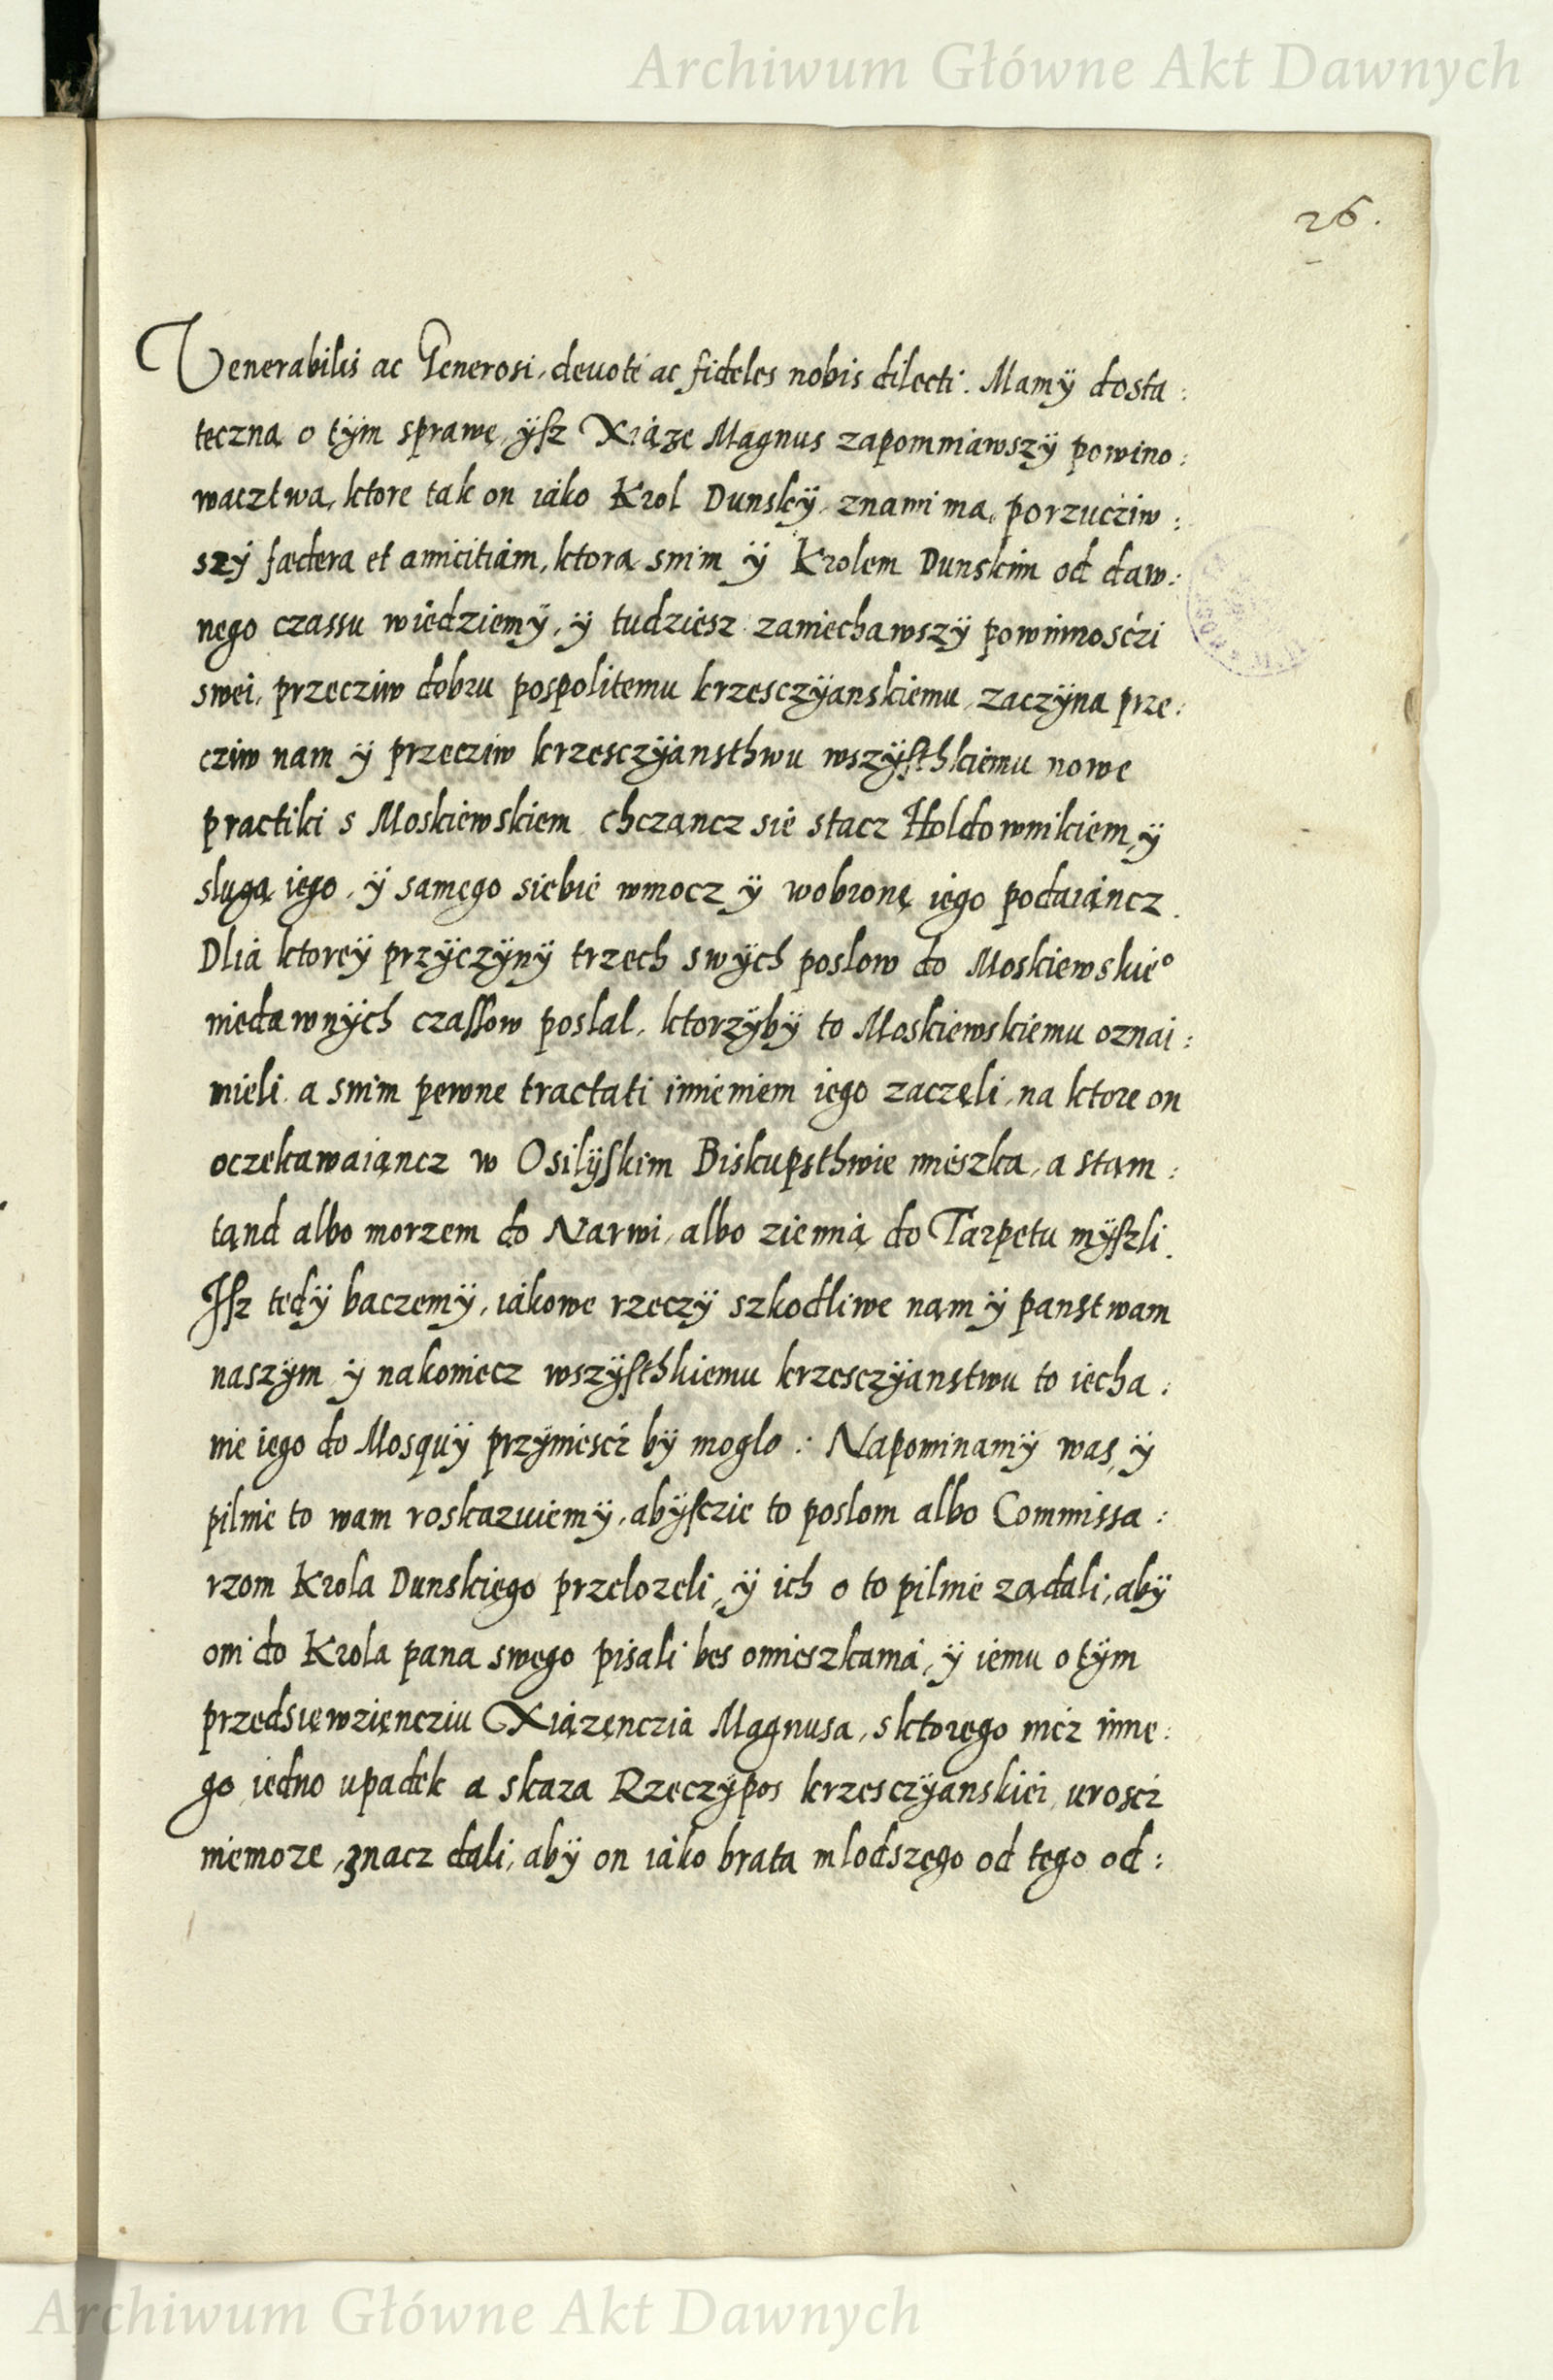 Archiwum Główne Akt Dawnych
26.
Venerabilis ac Generosi, deuote ac fideles nobis dilecti. Mamÿ dosta:
teczną o tÿm sprawę, ÿsz Xiąze Magnus zapomniawszÿ powino:
wacztwa, ktore tak on iako Krol Dunskÿ znami ma, porzucziw:
szÿ fædera et amicitiam, ktorą snim ÿ Krolem Dunskim od daw:
nego czassu wiedziemÿ, ÿ tudziesz zaniechawszÿ powinnosczi
swei, przecziw dobru pospolitemu krzesczÿanskiemu, zaczÿna prze:
cziw nam ÿ przecziw krzesczÿansthwu wszÿsthkiemu nowe
practiki s Moskiewskiem chcząncz sie stacz Holdownikiem, ÿ
slugą iego, ÿ samego siebie wmocz ÿ wobronę iego podaiąncz.
Dlia ktoreÿ przÿczÿnÿ trzech swÿch poslow do Moskiewskie°
niedawnÿch czassow poslal, ktorzÿbÿ to Moskiewskiemu oznai:
mieli a snim pewne tractati imieniem iego zaczęli, na ktore on
oczekawaiąncz w Osilÿskim Biskupsthwie mieszka, a stam:
tąnd albo morzem do Narwi, albo ziemią do Tarpetu mÿszli.
Isz tedÿ baczemÿ, iakowe rzeczÿ szkodliwe nam ÿ panstwam
naszÿm ÿ nakoniecz wszÿsthkiemu krzesczÿanstwu to iecha:
nie iego do Mosquÿ przÿniescz bÿ moglo: Napominamÿ was, ÿ
pilnie to wam roskazuiemÿ, abÿsczie to poslom albo Commissa:
rzom Krola Dunskiego przelozeli, ÿ ich o to pilnie ządali, abÿ
oni do Krola pana swego pisali bes omieszkania, ÿ iemu o tÿm
przedsięwzięncziu Xiązenczia Magnusa, sktorego nicz inne:
go iedno upadek a skaza Rzeczÿpos krzesczÿanskiei uroscz
niemoze, znacz dali, abÿ on iako brata mlodszego od tego od:
Archiwum Główne Akt Dawnych